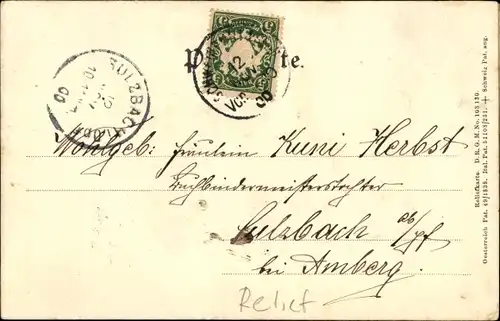 Postkarte.
SULZBACH
12
00
12
VOR
00
Wohlgeb: Fräulein Kuni Herbst
Buchbindermeisterstochter
Sulzbach ob/pf
bei Amberg.
Relief
Reliefkarte. D. R. G. M. No. 103 139.
Oesterreich Pat. 49/1838. Ital. Pat. 51103/251. + Schweiz Pat. ang.